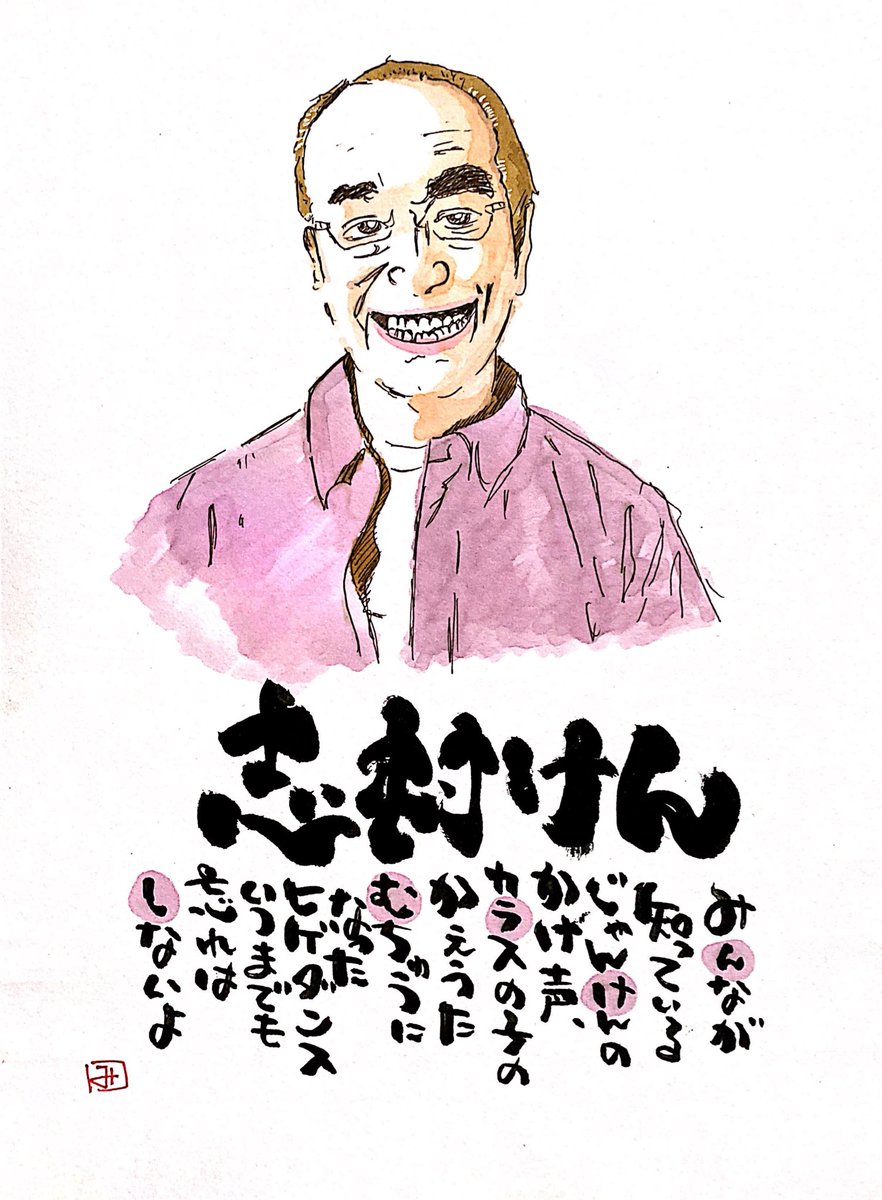 志村けん
みんなが
知っている
じゃんけんの
かけ声、
カラスの子の
かえうた
むちゅうに
なった
ヒゲダンス
いつまでも
忘れは
しないよ